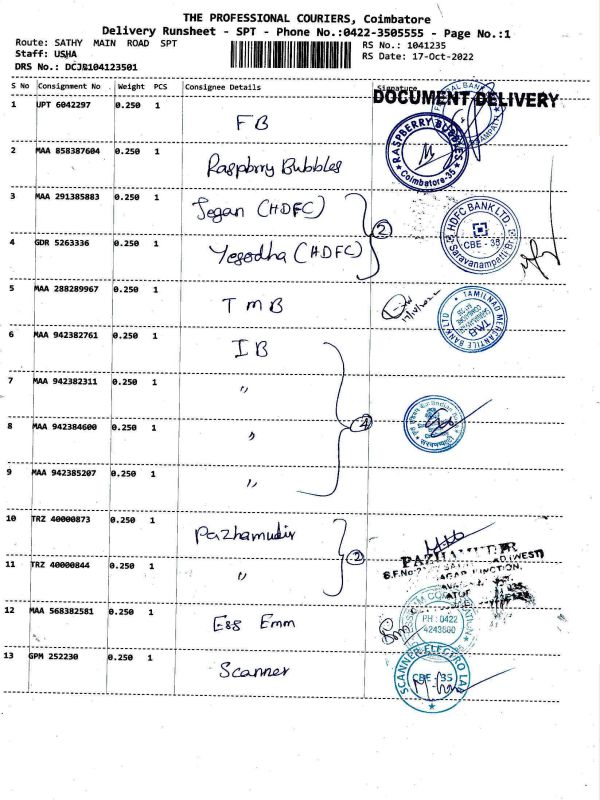 THE PROFESSIONAL COURIERS, Coimbatore
Delivery Runsheet - SPT - Phone No.:0422-3505555 - Page No.:1
Route: SATHY MAIN ROAD SPT
RS No.: 1041235
Staff: USHA
RS Date: 17-Oct-2022
DRS No.: DCJB104123501
S No Consignment No Weight PCS Consignee Details Signature
DOCUMENT DELIVERY
1 UPT 6042297 0.250 1 FB
2 MAA 858387604 0.250 1 Raspbrry Bubbles
RASPBERRY BUBBLES
Coimbatore-35
3 MAA 291385883 0.250 1 Jegan (HDFC)
2
HDFC BANK LTD.
CBE - 35
Saravanampatti Br.
4 GDR 5263336 0.250 1 Yesodha (HDFC)
5 MAA 288289967 0.250 1 TMB
TAMILNAD MERCANTILE BANK LTD
6 MAA 942382761 0.250 1 IB
7 MAA 942382311 0.250 1 "
8 MAA 942384600 0.250 1 "
4
9 MAA 942385207 0.250 1 "
10 TRZ 40000873 0.250 1 Pazhamudir
2
PAZHAMUDIR
11 TRZ 40000844 0.250 1 "
12 MAA 568382581 0.250 1 Ess Emm
PH : 0422
4243800
13 GPM 252230 0.250 1 Scanner
SCANNER ELECTRO LAB
CBE - 35